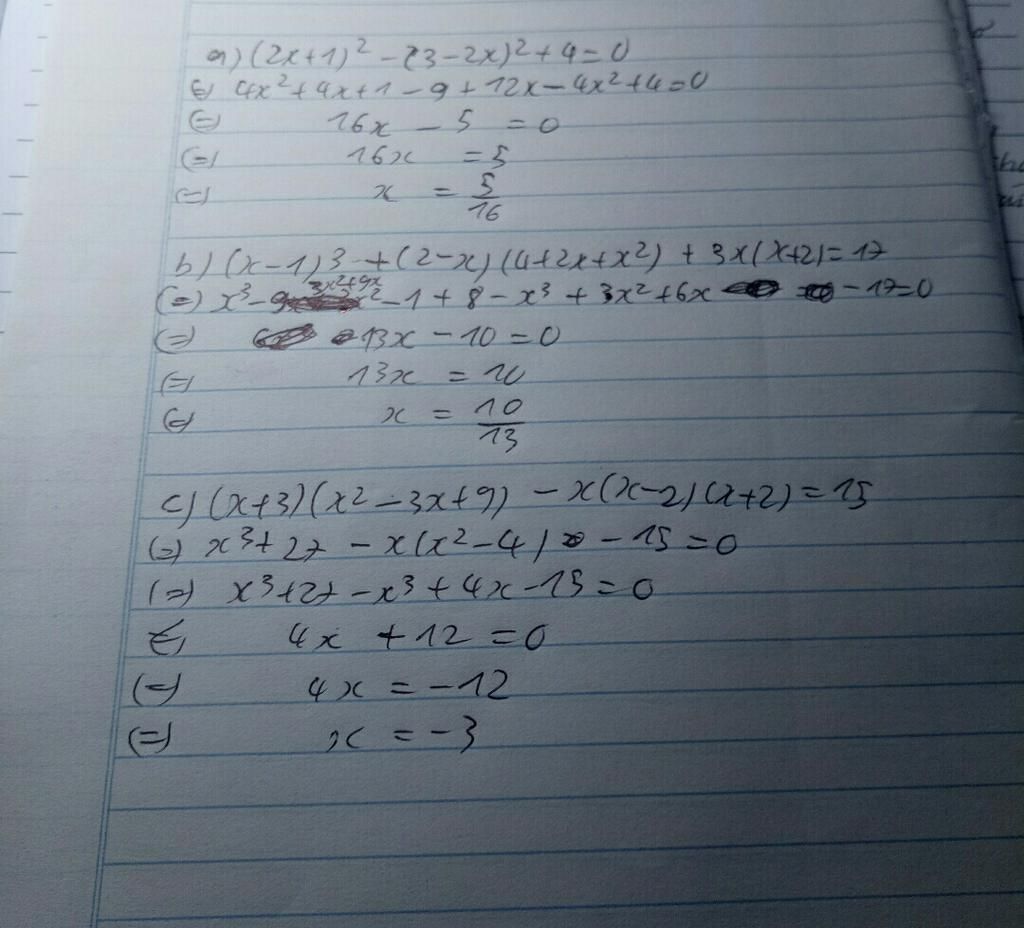 a) (2x+1)² - (3-2x)² + 4 = 0
⇔ 4x² + 4x + 1 - 9 + 12x - 4x² + 4 = 0
⇔ 16x - 5 = 0
⇔ 16x = 5
⇔ x = 5/16
b) (x-1)3 + (2-x)(4+2x+x²) + 3x(x+2) = 17
3x²+9x
⇔ x³ - x² - 1 + 8 - x³ + 3x² + 6x - 17 = 0
⇔ 13x - 10 = 0
⇔ 13x = 10
⇔ x = 10/13
c) (x+3)(x² - 3x + 9) - x(x-2)(x+2) = 15
⇔ x³ + 27 - x(x² - 4) - 15 = 0
⇔ x³ + 27 - x³ + 4x - 15 = 0
⇔ 4x + 12 = 0
⇔ 4x = -12
⇔ x = -3